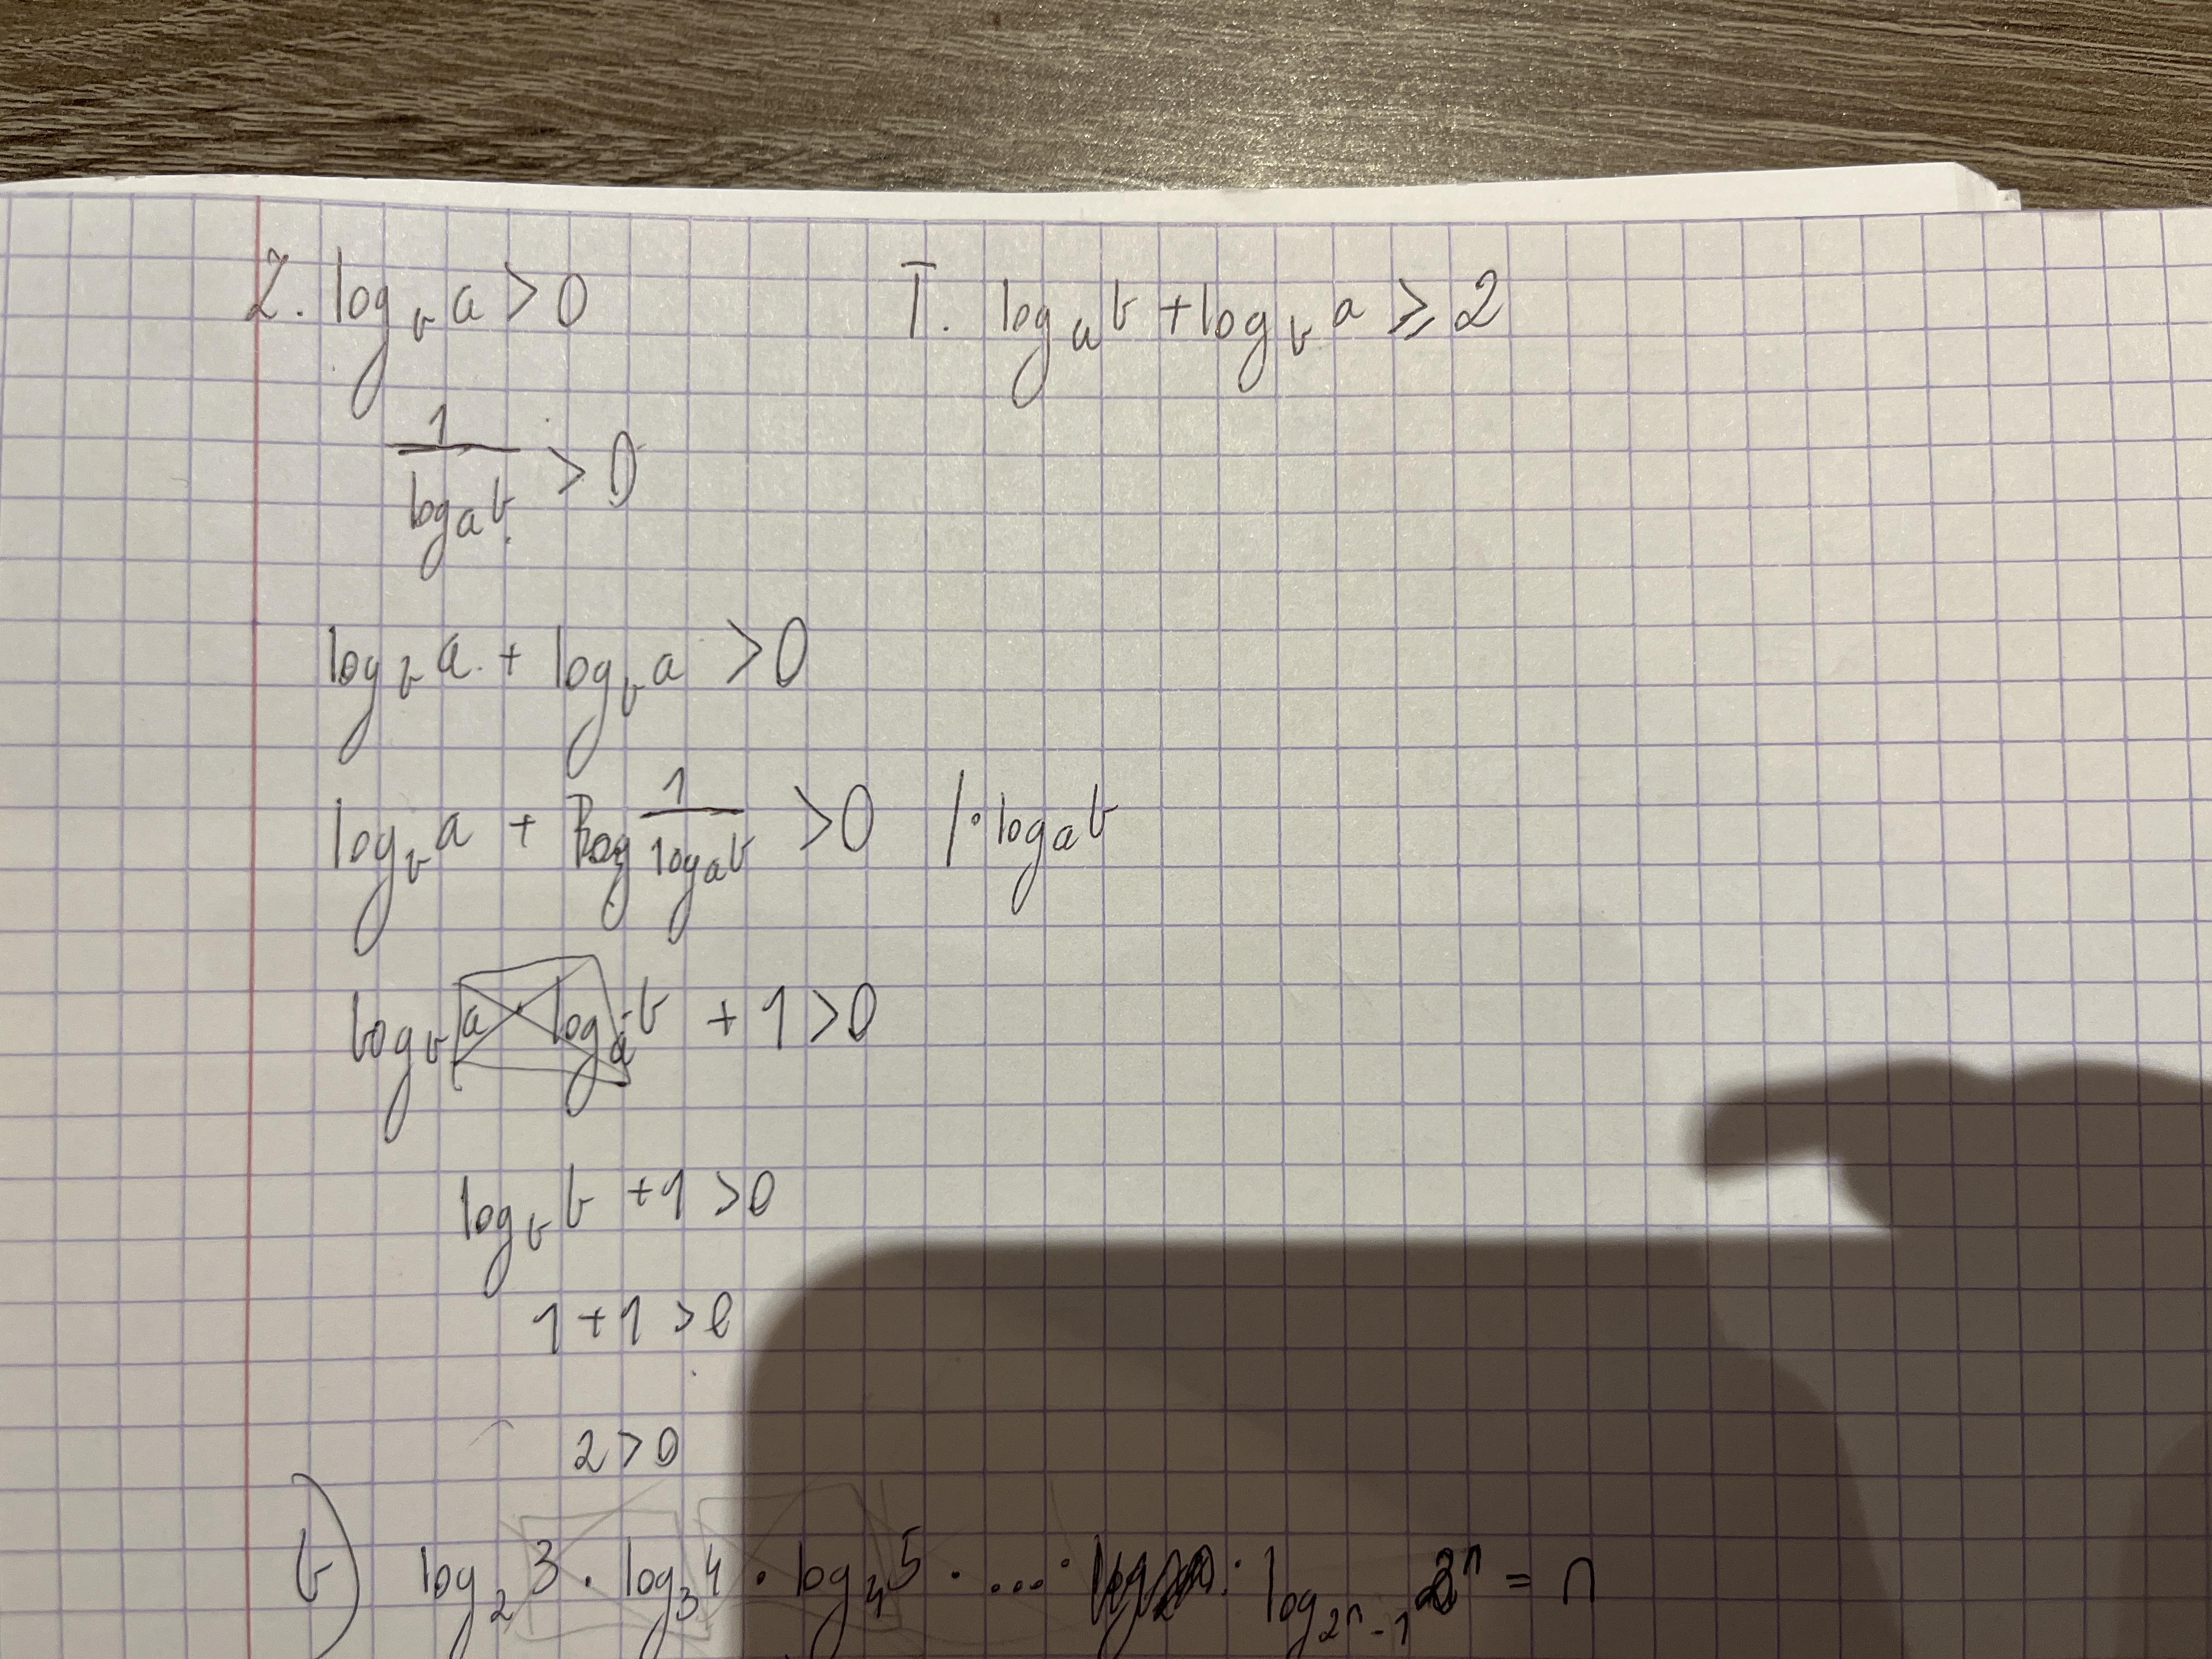 Z. log_b a > 0 T. log_a b + log_b a ⩾ 2
1/(log_a b) > 0
log_b a + log_b a > 0
log_b a + 1/(log_a b) > 0 /· log_a b
log_b a · log_a b + 1 > 0
log_b b + 1 > 0
1 + 1 > 0
2 > 0
b) log_2 3 · log_3 4 · log_4 5 · ... · log_{2^n - 1} 2^n = n